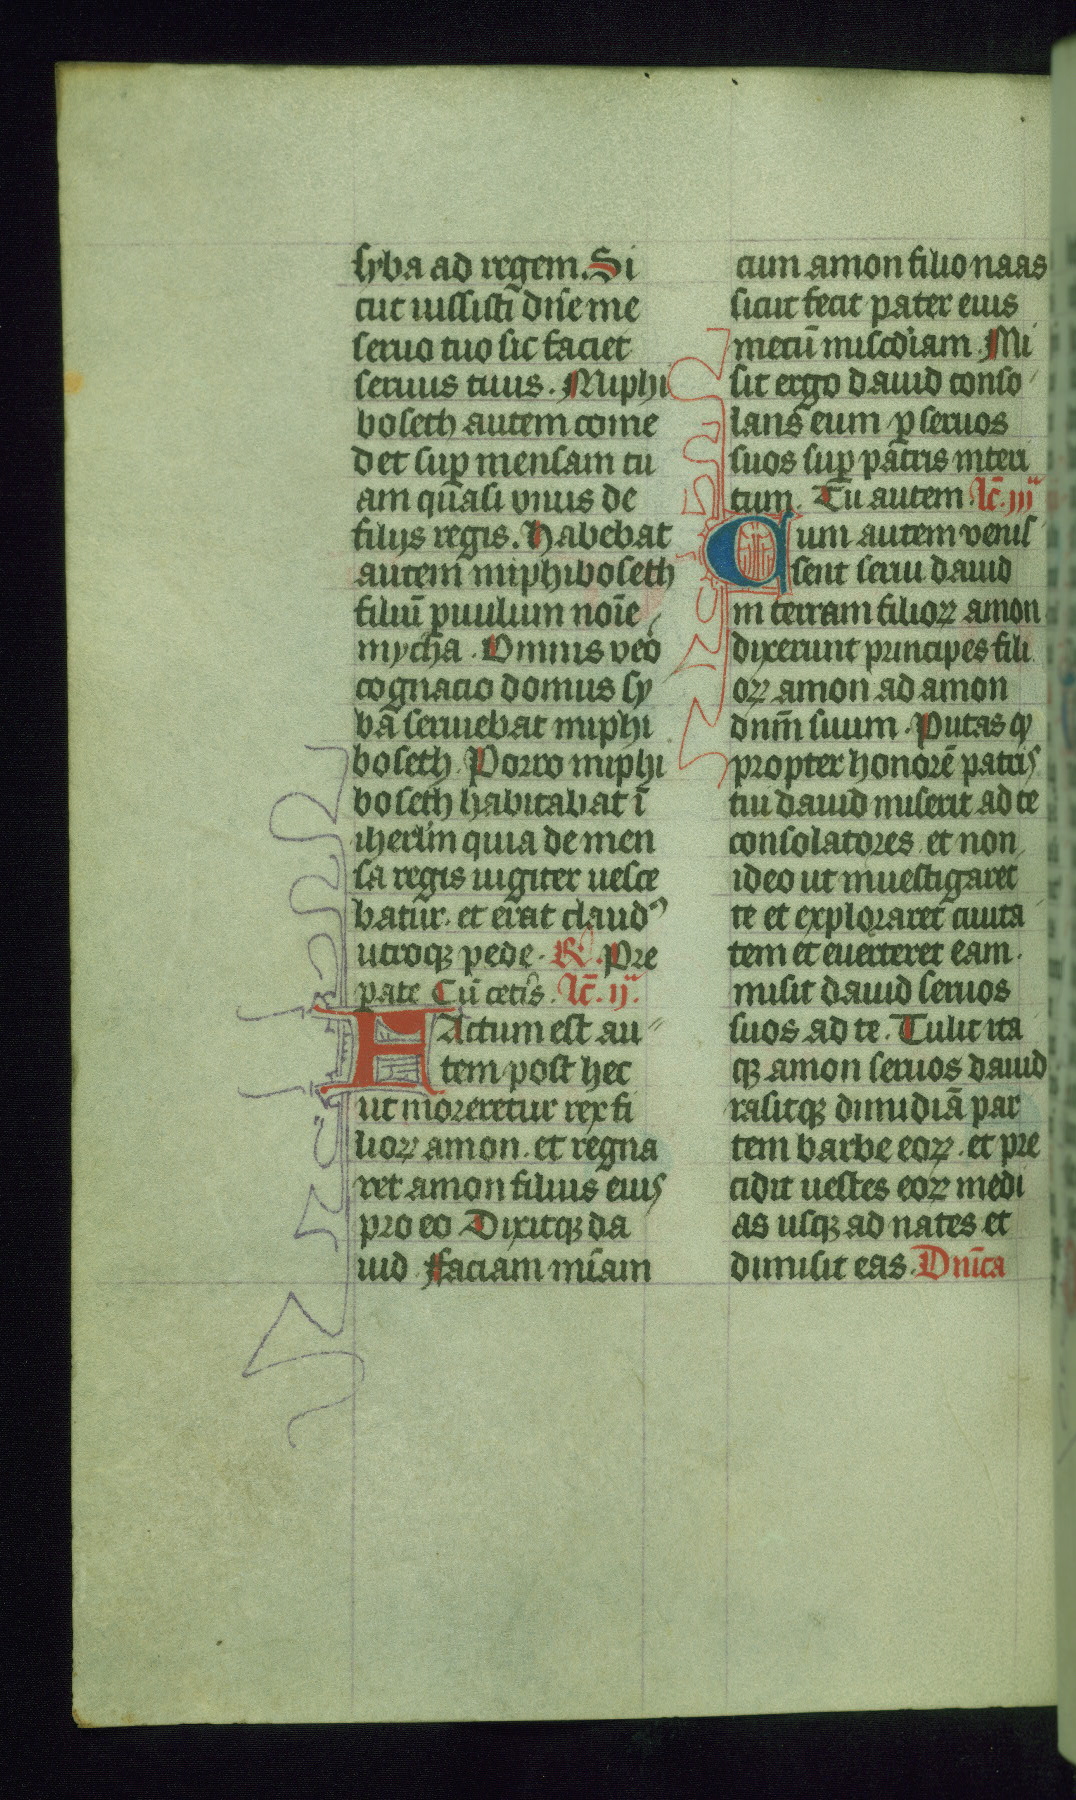 syba ad regem. Si
cut iussisti dn̄e me
seruo tuo sic faciet
seruus tuus. Miphi
boseth autem come
det sup mensam tu
am quāsi vnus de
filijs regis. Habebat
autem miphiboseth
filiū puulum noīe
mycha. Omnis veo
cognacio domus sy
ba seruiebat miphi
boseth. Porro miphi
boseth habitabat ī
iherlm̄ quia de men
sa regis iugiter uesce
batur. et erat claudꝰ
utroqꝫ pede. R̷. Pre
pate Cū cetis. lc̄. ij.
FActum est au
tem post hec
ut moreretur rex fi
lioꝝ amon. et regna
ret amon filius eius
pro eo Dixitqꝫ da
uid. Faciam mīam
cum amon filio naas
sicut fecit pater eius
mecū miscdiam. Mi
sit ergo dauid conso
lans eum ꝑ seruos
suos sup pātris interi
tum. Tu autem. lc̄. iij
Cum autem venis
sent serui dauid
in terram filioꝝ amon
dixerunt principes fili
oꝝ amon ad amon
dnm̄ suum. Putas qꝫ
propter honorē patris
tui dauid miserit ad te
consolatores. et non
ideo ut inuestigaret
te et exploraret ciuita
tem et euerteret eam.
misit dauid seruos
suos ad te. Tulit ita
qꝫ amon seruos dauid
rasitqꝫ dimidiā par
tem barbe eoꝝ. et pre
cidit uestes eoꝝ medi
as usqꝫ ad nates et
dimisit eas. Dnīca